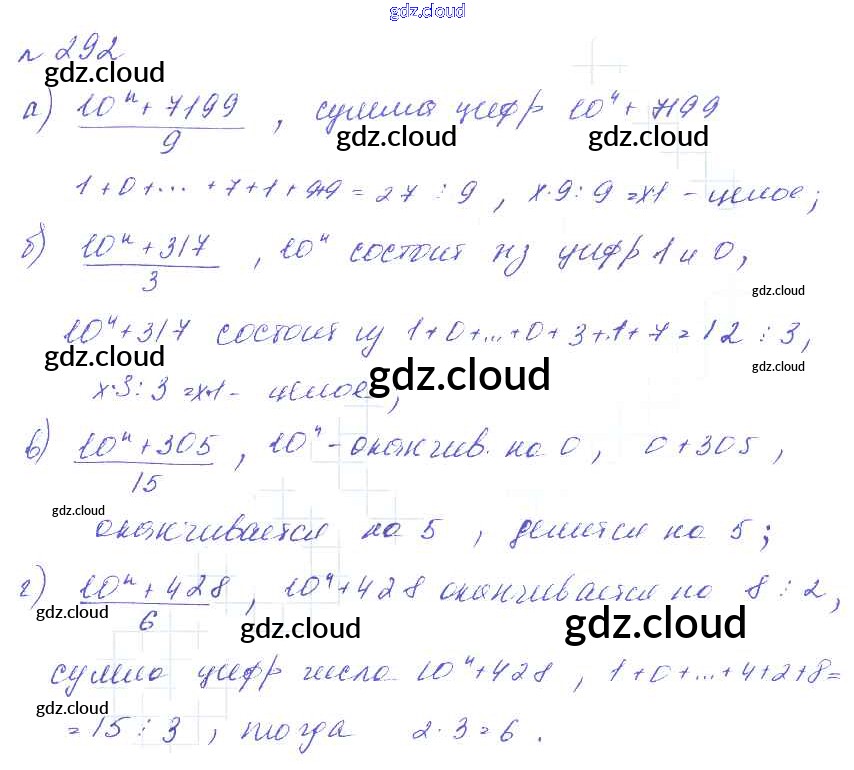 gdz.cloud
n 292
gdz.cloud
а) (10ⁿ + 7199)/9 , сумма цифр 10ⁿ + 7199
gdz.cloud gdz.cloud
1+0+... +7+1+9+9 = 27 ⋮ 9 , x·9:9 = x·1 - целое;
б) (10ⁿ + 317)/3 , 10ⁿ состоит из цифр 1 и 0,
gdz.cloud
10ⁿ+317 состоит из 1+0+...+0+3+1+7=12 ⋮ 3,
gdz.cloud gdz.cloud gdz.cloud
x·3:3 = x·1 - целое,
в) (10ⁿ + 305)/15 , 10ⁿ - оканчив. на 0, 0+305,
gdz.cloud
оканчивается на 5 , делится на 5;
г) (10ⁿ + 428)/6 , 10ⁿ+428 оканчивается на 8 ⋮ 2,
gdz.cloud gdz.cloud gdz.cloud
сумма цифр числа 10ⁿ+428 , 1+0+...+4+2+8=
gdz.cloud
= 15 ⋮ 3 , тогда 2·3=6 .